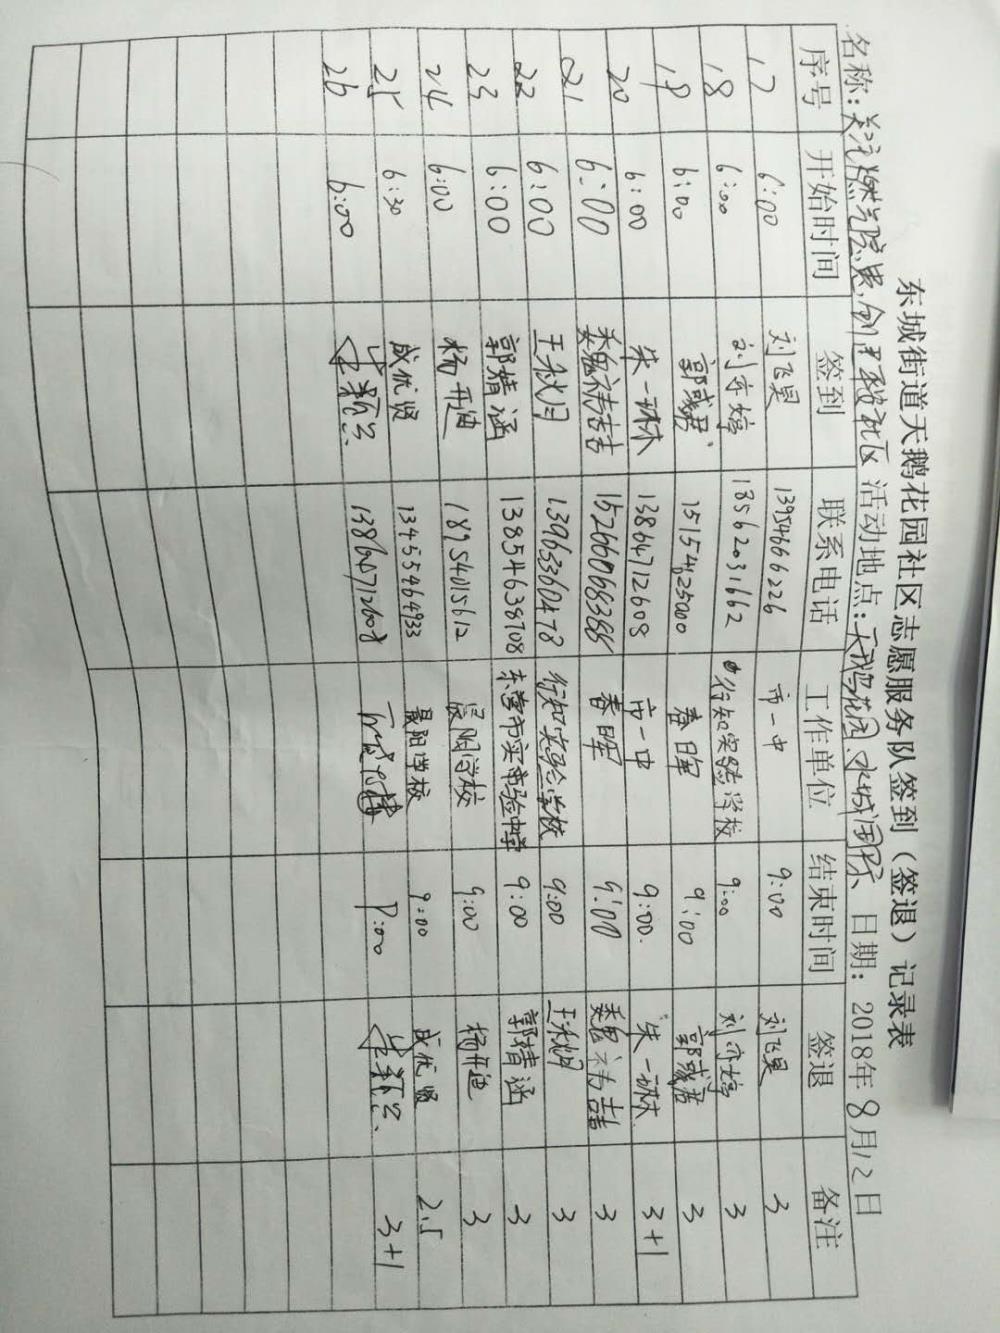 东城街道天鹅花园社区志愿服务队签到（签退）记录表
名称：关注燃气隐患，创建 社区 活动地点：天鹅花园、水城国际 日期：2018年8月12日
序号 开始时间 签到 联系电话 工作单位 结束时间 签退 备注
17 6:00 刘飞昊 13954666226 市一中 9:00 刘飞昊 3
18 6:00 刘亦婷 13562031662 行知实验学校 9:00 刘亦婷 3
19 6:00 郭成君 15154625000 春晖 9:00 郭成君 3
20 6:00 朱一琳 13864712608 市一中 9:00 朱一琳 3+1
21 6:00 魏祎喆 15266068388 春晖 9:00 魏祎喆 3
22 6:00 王秋月 13963360478 行知实验学校 9:00 王秋月 3
23 6:00 郭婧涵 13854638708 东营市实验中学 9:00 郭婧涵 3
24 6:00 杨开迪 18954015612 晨阳学校 9:00 杨开迪 3
25 6:30 成优贤 13455464933 晨阳学校 9:00 成优贤 2.5
26 6:00 13864712608 9:00 3+1